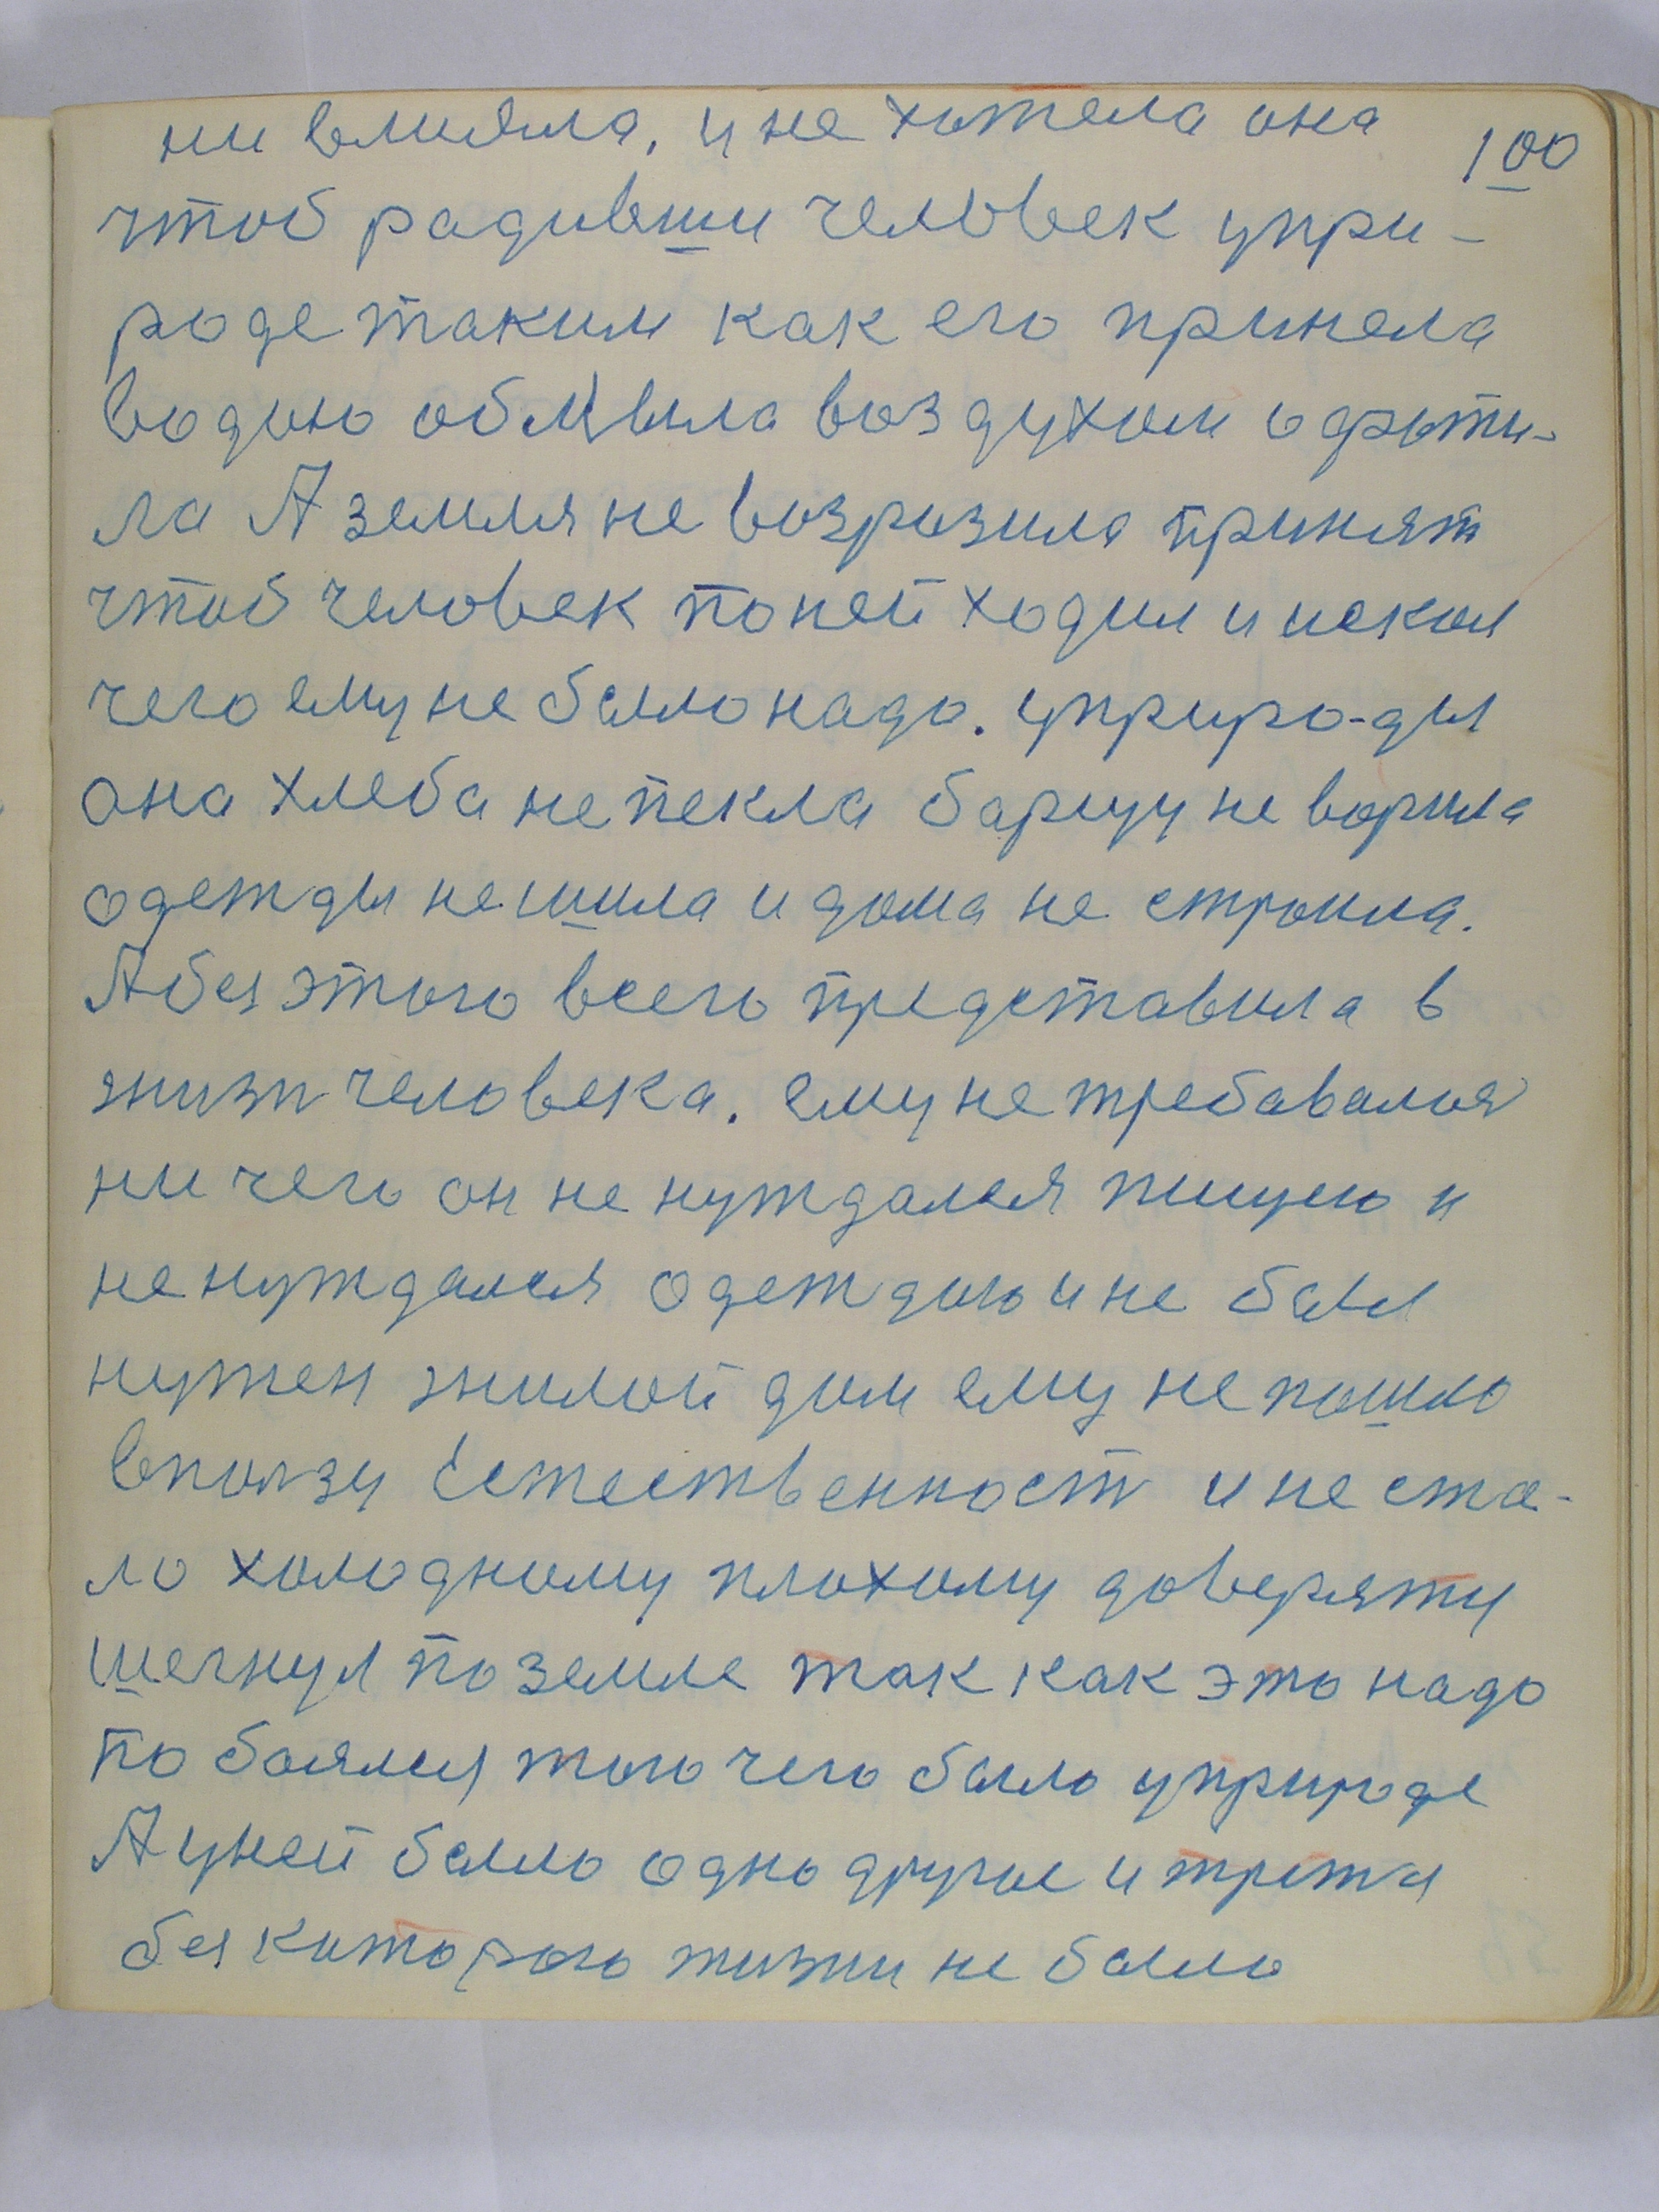 100
ни влияла, и не хотела она
чтоб радивши человек упри-
роде таким как его принела
водою обмыла воздухом офрти-
ла А земля не возрозила принят
чтоб человек поней ходил и искал
чего ему не было надо. уприро-ды
она хлеба непекла барщу не ворила
одежды нешила и дома не строила.
А без этого всего представила в
жизн человека. ему не требавался
ни чего он не нуждался пищею и
не нуждался одеждою и не был
нужен жилой дом ему непошло
вползу Естественност и не ста-
ло холодному плохому доверяту
шегнул по земле так как это надо
по боялся того чего было уприроде
А уней было одно другое и трети
без которого жизни не было